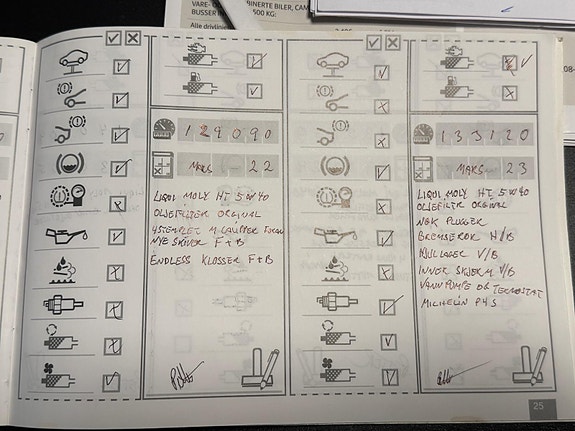 VARE- OG
BINERTE BILER, CAM
BUSSER IN
500 KG:
Alle drivlinjer
08-
129090
MARS 22
LIQUI MOLY HT 5W40
OLJEFILTER ORGINAL
NYE SKIVER F+B
ENDLESS KLOSSER F+B
133120
MARS 23
LIQUI MOLY HT 5W40
OLJEFILTR ORGINAL
NGK PLUGGER
BREMSERØR H/B
HJULLAGER V/B
INNER SKJERM V/B
VANNPUMPE OG TERMOSTAT
MICHELIN P4S
25